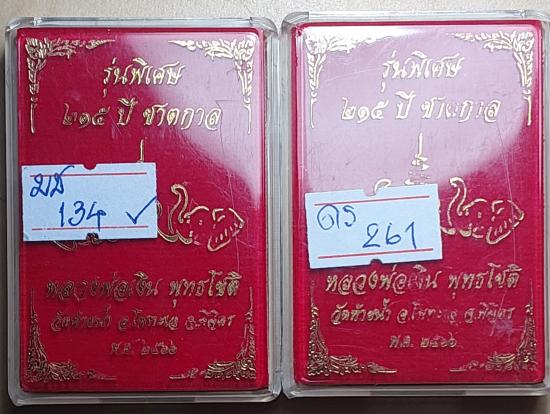 รุ่นพิเศษ
๒๑๕ ปี ชาตกาล
มช
134 ✓
หลวงพ่อเงิน พุทธโชติ
วัดท้ายน้ำ อ.โพทะเล จ.พิจิตร
พ.ศ. ๒๕๖๖
รุ่นพิเศษ
๒๑๕ ปี ชาตกาล
261
หลวงพ่อเงิน พุทธโชติ
วัดท้ายน้ำ อ.โพทะเล จ.พิจิตร
พ.ศ. ๒๕๖๖